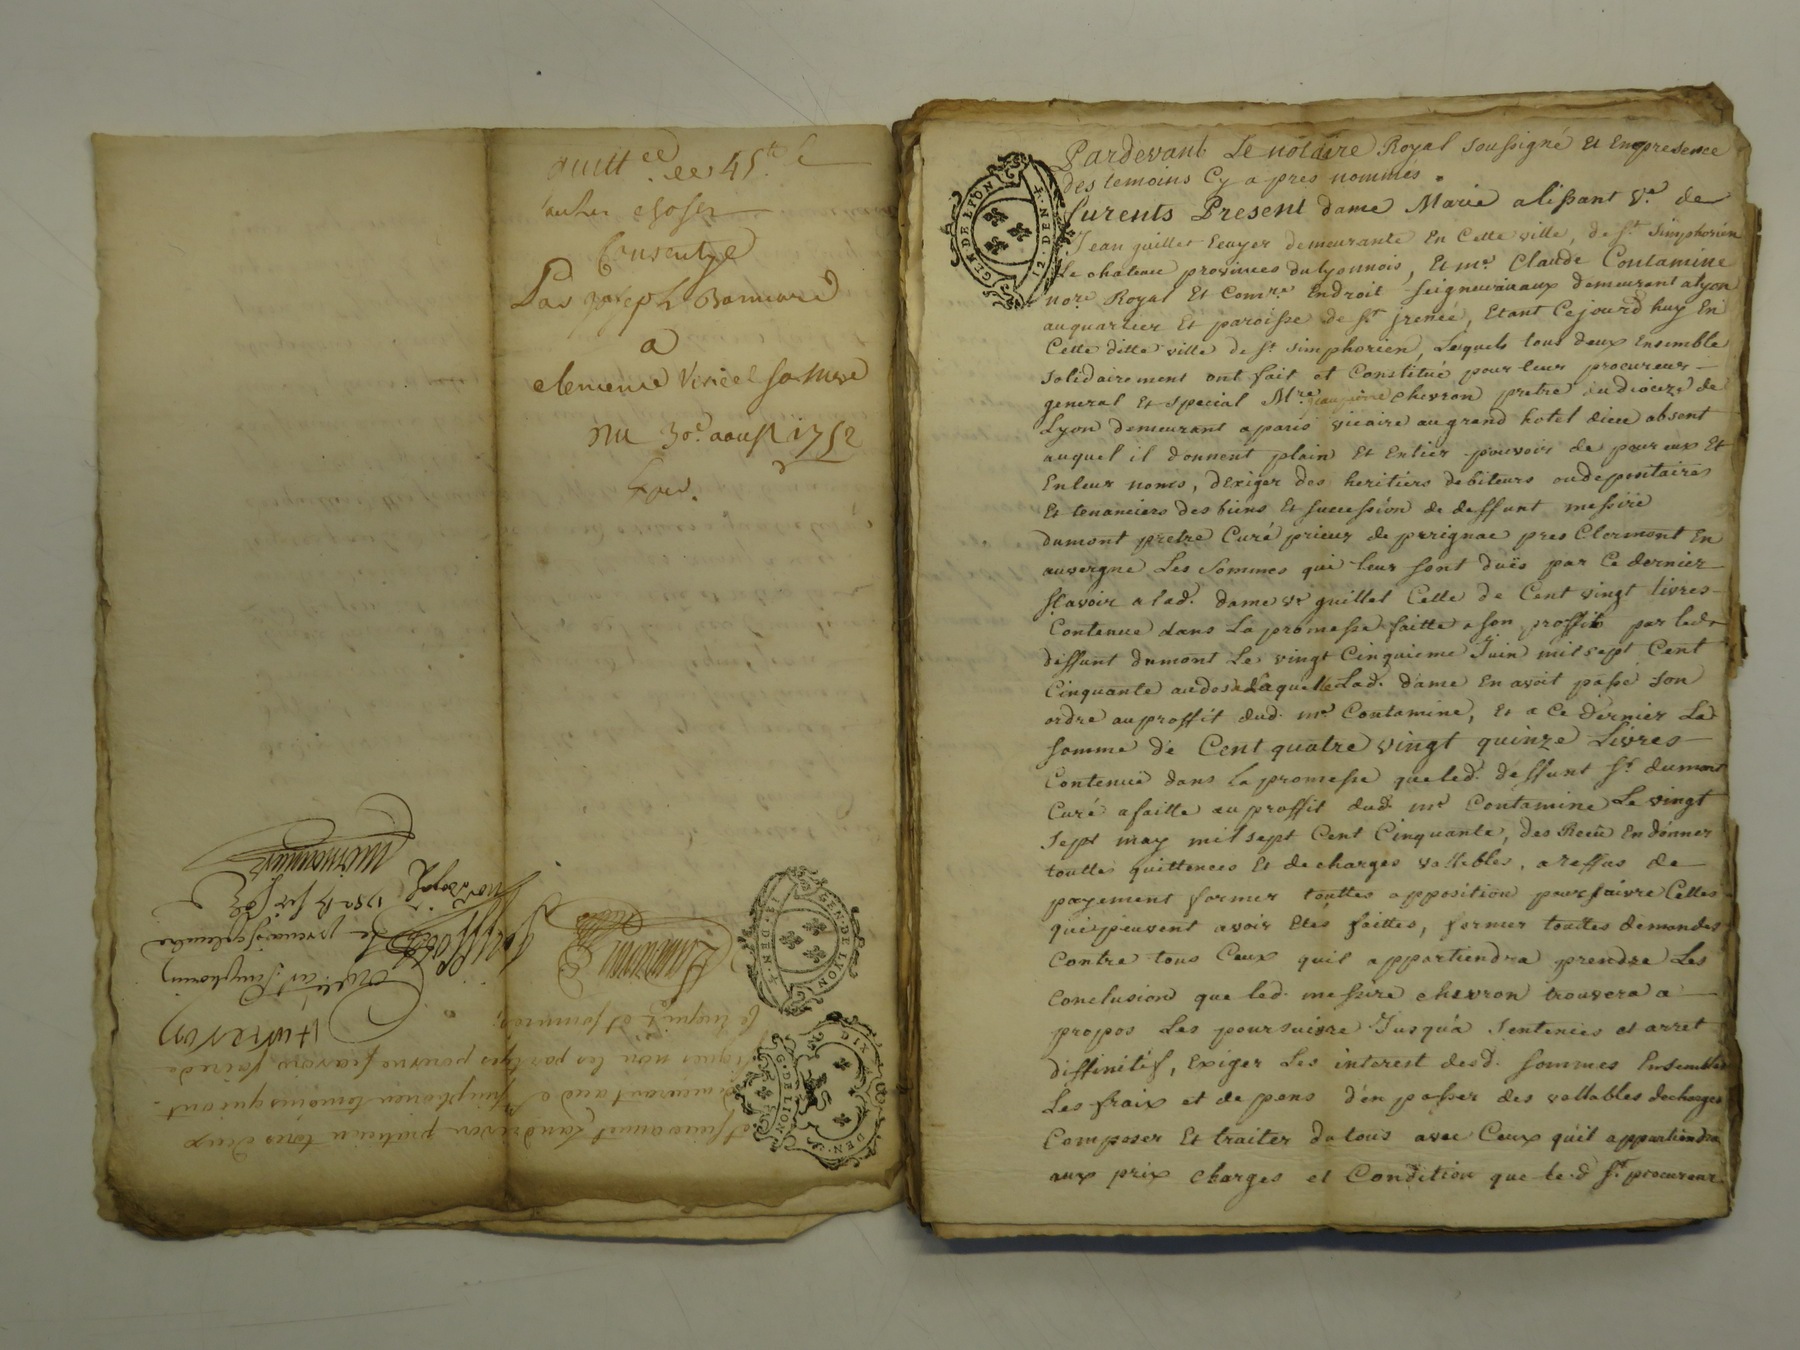 quitt.ce de 45.
Par Joseph Bonnard
a
clemence Vericel sa Mere
Du 30.e aoust 1752
Exped.
GEN. DE LYON
12. DEN. 4.
GEN. DE LYON
12. DEN. 4.
G. D. LION
DIX DEN.
et sieur annet Landriven praticien tous deux
demeurant aud st simphorien temoins qui ont
signés non les parties pour ne scavoir faire de
ce enquis et sommées,
Pardevant Le notaire Royal soussigné Et En presence
des temoins Cy a pres nommés.
furents Present dame Marie alissant V.e de
Jean guillet Ecuyer demeurante En Cette ville, de s.t Simphorien
Le chateau provinces du lyonnois, Et m.e Claude Contamine
no.re Royal Et Com.re En droit seigneuriaux demeurant a lyon
au quartier Et paroisse de s.t jrenée, Etant Cejourd'huy En
Cette ditte ville de s.t simphorien, Lesquels tous deux Ensemble
solidairement ont fait et Constitué pour leur procureur
general Et special M.re chevron pretre du dioceze de
Lyon demeurant a paris vicaire au grand hotel dieu absent
auquel il donnent plain Et Entier pouvoir de pour eux Et
En leur noms, d'Exiger des heritiers debiteurs ou depositaires
Et tenanciers des biens Et succession de deffunt messire
dumont pretre Curé prieur de perignac pres Clermont En
auvergne Les Sommes qui leur sont duës par Ce dernier
sçavoir a lad. dame v.e guillet Celle de Cent vingt livres
Contenue dans La promesse faitte a son proffit par led.
deffunt dumont Le vingt Cinquieme Juin mil sept Cent
Cinquante au dos de Laquelle Lad. dame En avoit passé son
ordre au proffit dud. m.e Contamine, Et a Ce dernier La
somme de Cent quatre vingt quinze Livres
Contenue dans la promesse que led. deffunt s.r dumont
Curé a faitte au proffit dud. m.e Contamine Le vingt
sept may mil sept Cent Cinquante, des Receu En donner
touttes quittences Et decharges vallables, a reffus de
payement former touttes opposition poursuivre Celles
qui peuvent avoir Etés faittes, former touttes demandes
Contre tous Ceux quil appartiendra prendre Les
Conclusions que led. messire chevron trouvera a
propos Les poursuivre Jusqu'a Sentences et arret
diffinitif, Exiger Les interest desd. sommes Ensembles
Les fraix et depens d'en passer des vallables decharges
Composer Et traiter du tous avec Ceux qu'il appartiendra
aux prix charges et Condition que led s.r procureur